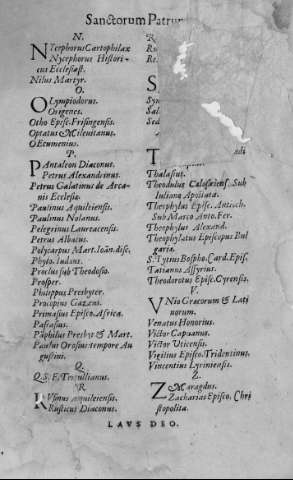 Sanctorum Patrum
N.
NIcephorus Cartophilax
Nycephorus Histori-
cus Ecclesiast.
Nilus Martyr.
O.
OLympiodorus.
Origenes.
Otho Episc. Frisingensis.
Optatus Mileuitanus.
OEcumenius.
P.
PAntaleon Diaconus.
Petrus Alexandrinus.
Petrus Galatinus de Arca-
nis Ecclesia.
Paulinus Aquileiensis.
Paulinus Nolanus.
Pelegrinus Laureacensis.
Petrus Alboinus.
Polycarpus Mart. Ioan. disc.
Phylo. Iudaus.
Proclus sub Theodosio.
Prosper.
Philippus Presbyter.
Procopius Gazaeus.
Primasius Episc. Africa.
Pascasius.
Pamphilus Presbyt & Mart.
Paulus Orosius tempore Au
gustini.
Q.
Q. S. F. Tertullianus.
R.
RVfinus Aquileiensis.
Rusticus Diaconus.
R
Re
S
Syn
Sal
Sed
T
Thalasius.
Theodulus Calosiriens. Sub
Iuliano Apostata.
Theophylus Episc. Antioch.
Sub Marco Anto. Fer.
Theophylus Alexand.
Theophilatus Episcopus Bul
garia.
S. Tytus Bospho. Card. Epis.
Tatianus Assyrius.
Theodoretus Episc. Cyrensis.
V.
VNio Gracorum & Lati
norum.
Venatus Honorius.
Victor Capuanus.
Victor Vticensis.
Vigilius Episco. Tridentinus.
Vincentius Lyrinensis.
Z.
ZMaragdus.
Zacharias Episco. Chri
stopolita.
LAVS DEO.